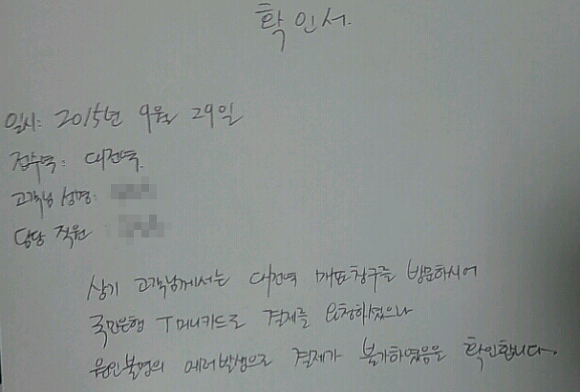 확인서.
일시: 2015년 9월 29일
접수역: 대전역.
고객님 성명:
담당 직원:
상기 고객님께서는 대전역 매표창구를 방문하시어
국민은행 T머니카드로 결제를 요청하였으나
원인불명의 에러발생으로 결제가 불가하였음을 확인합니다.